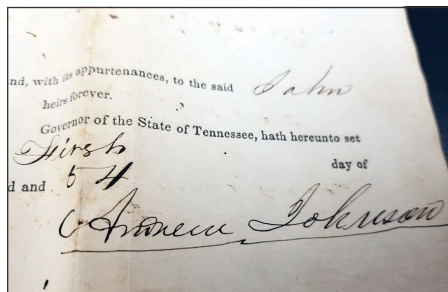 nd, with its appurtenances, to the said John
heirs forever.
Governor of the State of Tennessee, hath hereunto set
First day of
d and 54
Andrew Johnson